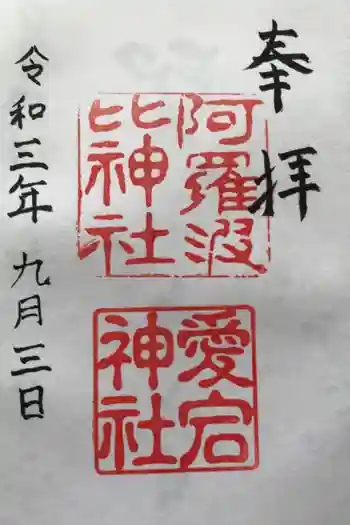 奉拝
阿羅波
比神社
愛宕
神社
令和三年九月三日